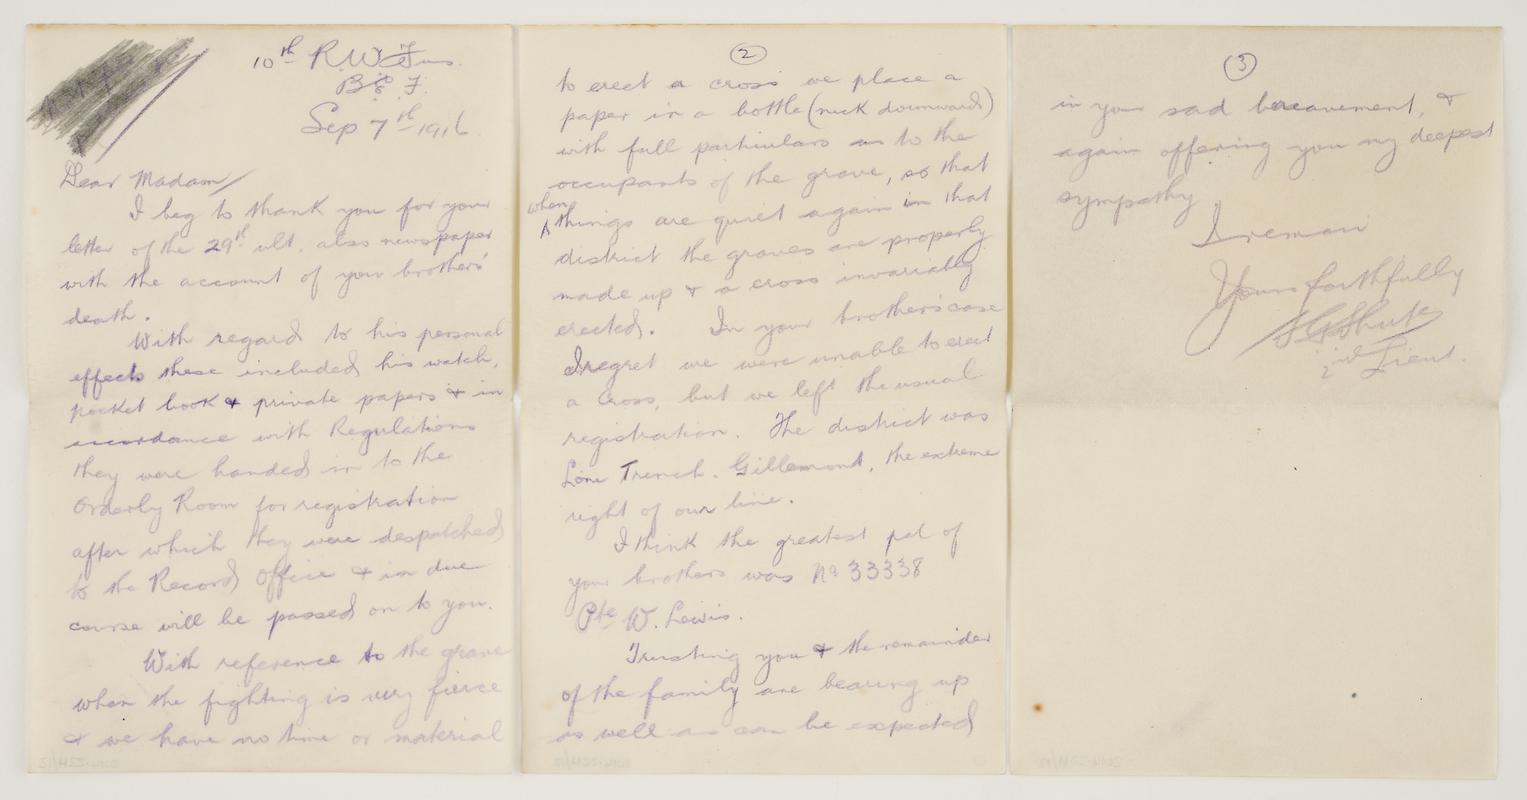 10th R.W. Fus.
B.E.F.
Sep 7th 1916
Dear Madam/
I beg to thank you for your
letter of the 29th ult. also newspaper
with the account of your brothers'
death.
With regard to his personal
effects these included his watch,
pocket book & private papers & in
accordance with Regulations
they were handed in to the
Orderly Room for registration
after which they were despatched
to the Record Office & in due
course will be passed on to you.
With reference to the grave
when the fighting is very fierce
& we have no time or material
2
to erect a cross we place a
paper in a bottle (neck downwards)
with full particulars as to the
occupants of the grave, so that
when things are quiet again in that
district the graves are properly
made up & a cross invariably
erected. In your brother's case
I regret we were unable to erect
a cross, but we left the usual
registration. The district was
Lone Trench. Gillemont, the extreme
right of our line.
I think the greatest pal of
your brothers was No 33338
Pte W. Lewis.
Trusting you & the remainder
of the family are bearing up
as well as can be expected
3
in your sad bereavement, &
again offering you my deepest
sympathy,
I remain
Yours faithfully
2nd Lieut.